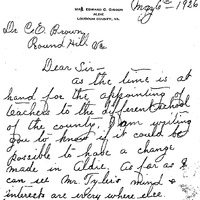 May 6th 1926
MRS EDWARD C. GIBSON
ALDIE
LOUDOUN COUNTY, VA.
Dr C. E. Brown,
Round Hill Va
Dear Sir—
as the time is at
hand for the appointing of
teachers to the different school
of the county, I am writing
you to know if it could be
possible to have a change
made in Aldie. As far as I
can see Mr. Tyler's mind &
interests are every where else